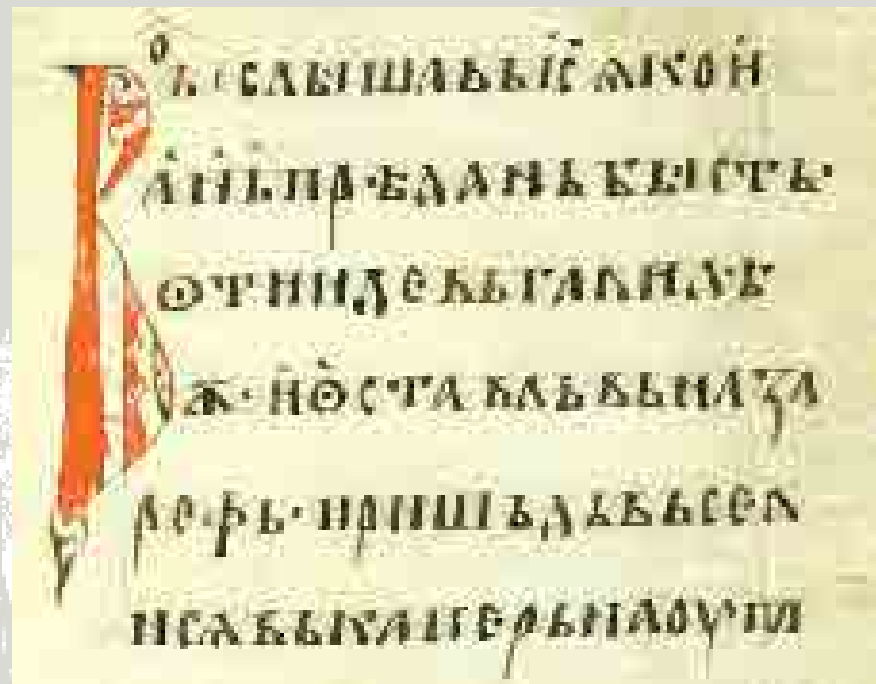 В ѻ ь · слышавь і҃с ѧко и
ань прѣдань бысть·
ѡтииде вь галилѣ
ѫ· и ѡставль вь наза
реѳь· и пришьдь вьсел
и сѧ вь каперьнаоум